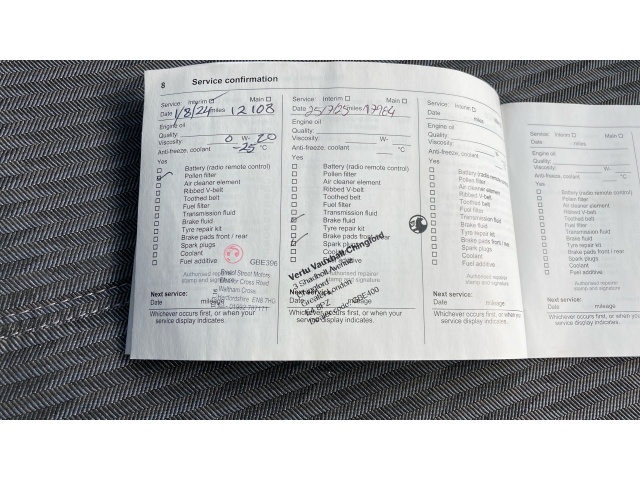 8 Service confirmation
Service: Interim Main
Date 1/8/24 miles 12108
Engine oil
Quality:
Viscosity: 0 W- 20
Anti-freeze, coolant -25 °C
Yes
Battery (radio remote control)
Pollen filter
Air cleaner element
Ribbed V-belt
Toothed belt
Fuel filter
Transmission fluid
Brake fluid
Tyre repair kit
Brake pads front / rear
Spark plugs
Coolant
Fuel additive
GBE396
Authorised repairer
stamp and signature
Street Motors
Cross Road
Waltham Cross
Hertfordshire EN8 7HD
Next service:
Date mileage
Whichever occurs first, or when your
service display indicates.
Service: Interim Main
Date 25/7/25 miles
Engine oil
Quality:
Viscosity: W-
Anti-freeze, coolant °C
Yes
Battery (radio remote control)
Pollen filter
Air cleaner element
Ribbed V-belt
Toothed belt
Fuel filter
Transmission fluid
Brake fluid
Tyre repair kit
Brake pads front / rear
Spark plugs
Coolant
Fuel additive
Authorised repairer
stamp and signature
Vertu Vauxhall Chingford
3 Shadbolt Avenue
Chingford
Greater London
Next service:
Date mileage
Whichever occurs first, or when your
service display indicates.
Service: Interim
Date miles
Engine oil
Quality:
Viscosity:
Anti-freeze, coolant
Yes
Battery (radio remote
Pollen filter
Air cleaner element
Ribbed V-belt
Toothed belt
Fuel filter
Transmission fluid
Brake fluid
Tyre repair kit
Brake pads front / rear
Spark plugs
Coolant
Fuel additive
Authorised repairer
stamp and signature
Next service:
Date mileage
Whichever occurs first, or when your
service display indicates.
Service: Interim Main
Date miles
Engine oil
Quality:
Viscosity: W-
Anti-freeze, coolant °C
Yes
Battery (radio remote control)
Pollen filter
Air cleaner element
Ribbed V-belt
Toothed belt
Fuel filter
Transmission fluid
Brake fluid
Tyre repair kit
Brake pads front / rear
Spark plugs
Coolant
Fuel additive
Authorised repairer
stamp and signature
Next service:
Date mileage
Whichever occurs first, or when your
service display indicates.